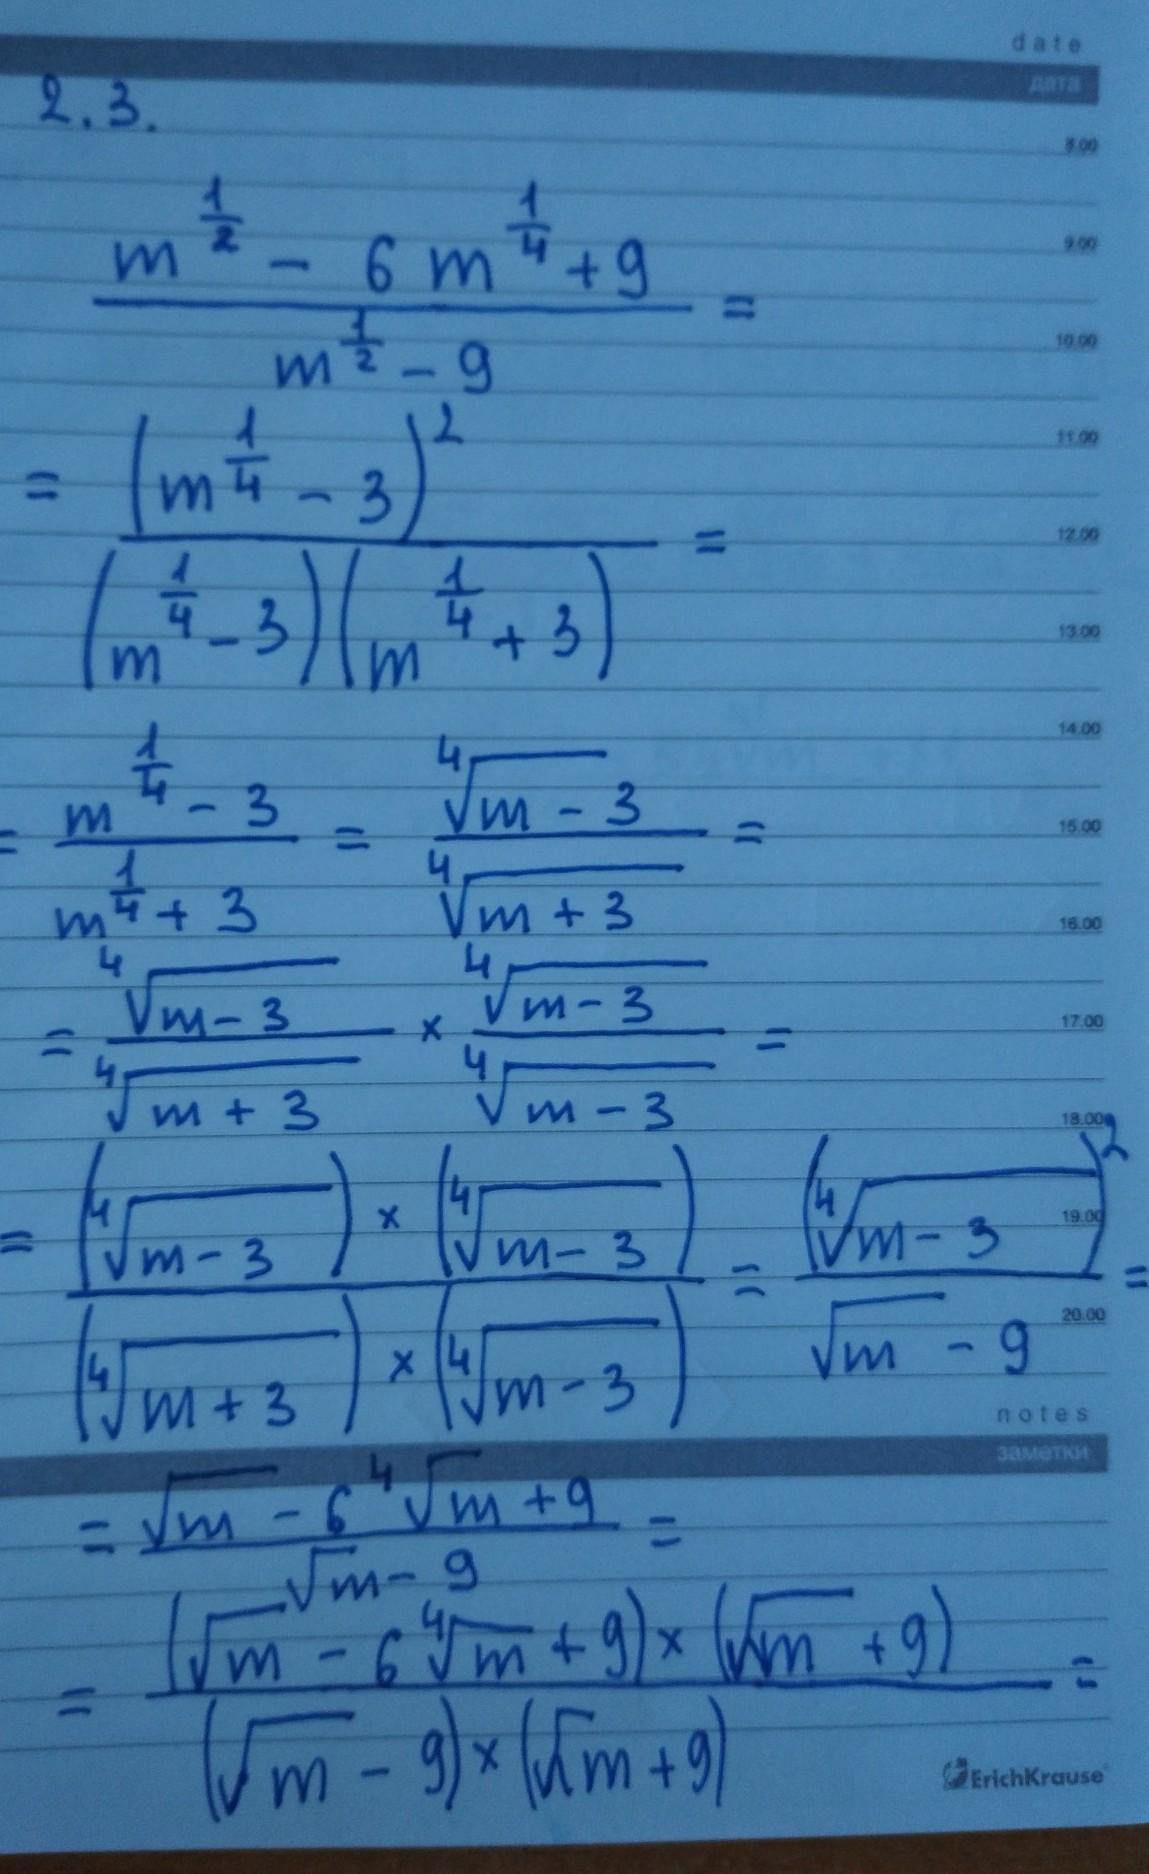 date
дата
2.3.
8.00
9.00
10.00
11.00
12.00
13.00
14.00
15.00
16.00
17.00
18.00
19.00
20.00
m^{1/2} - 6 m^{1/4} + 9 / m^{1/2} - 9 =
= (m^{1/4} - 3)^2 / (m^{1/4} - 3)(m^{1/4} + 3) =
= m^{1/4} - 3 / m^{1/4} + 3 = ⁴√m - 3 / ⁴√m + 3 =
= ⁴√m - 3 / ⁴√m + 3 × ⁴√m - 3 / ⁴√m - 3 =
= (⁴√m - 3) × (⁴√m - 3) / (⁴√m + 3) × (⁴√m - 3) = (⁴√m - 3)^2 / √m - 9 =
notes
заметки
= √m - 6 ⁴√m + 9 / √m - 9 =
= (√m - 6 ⁴√m + 9) × (√m + 9) / (√m - 9) × (√m + 9) =
ErichKrause